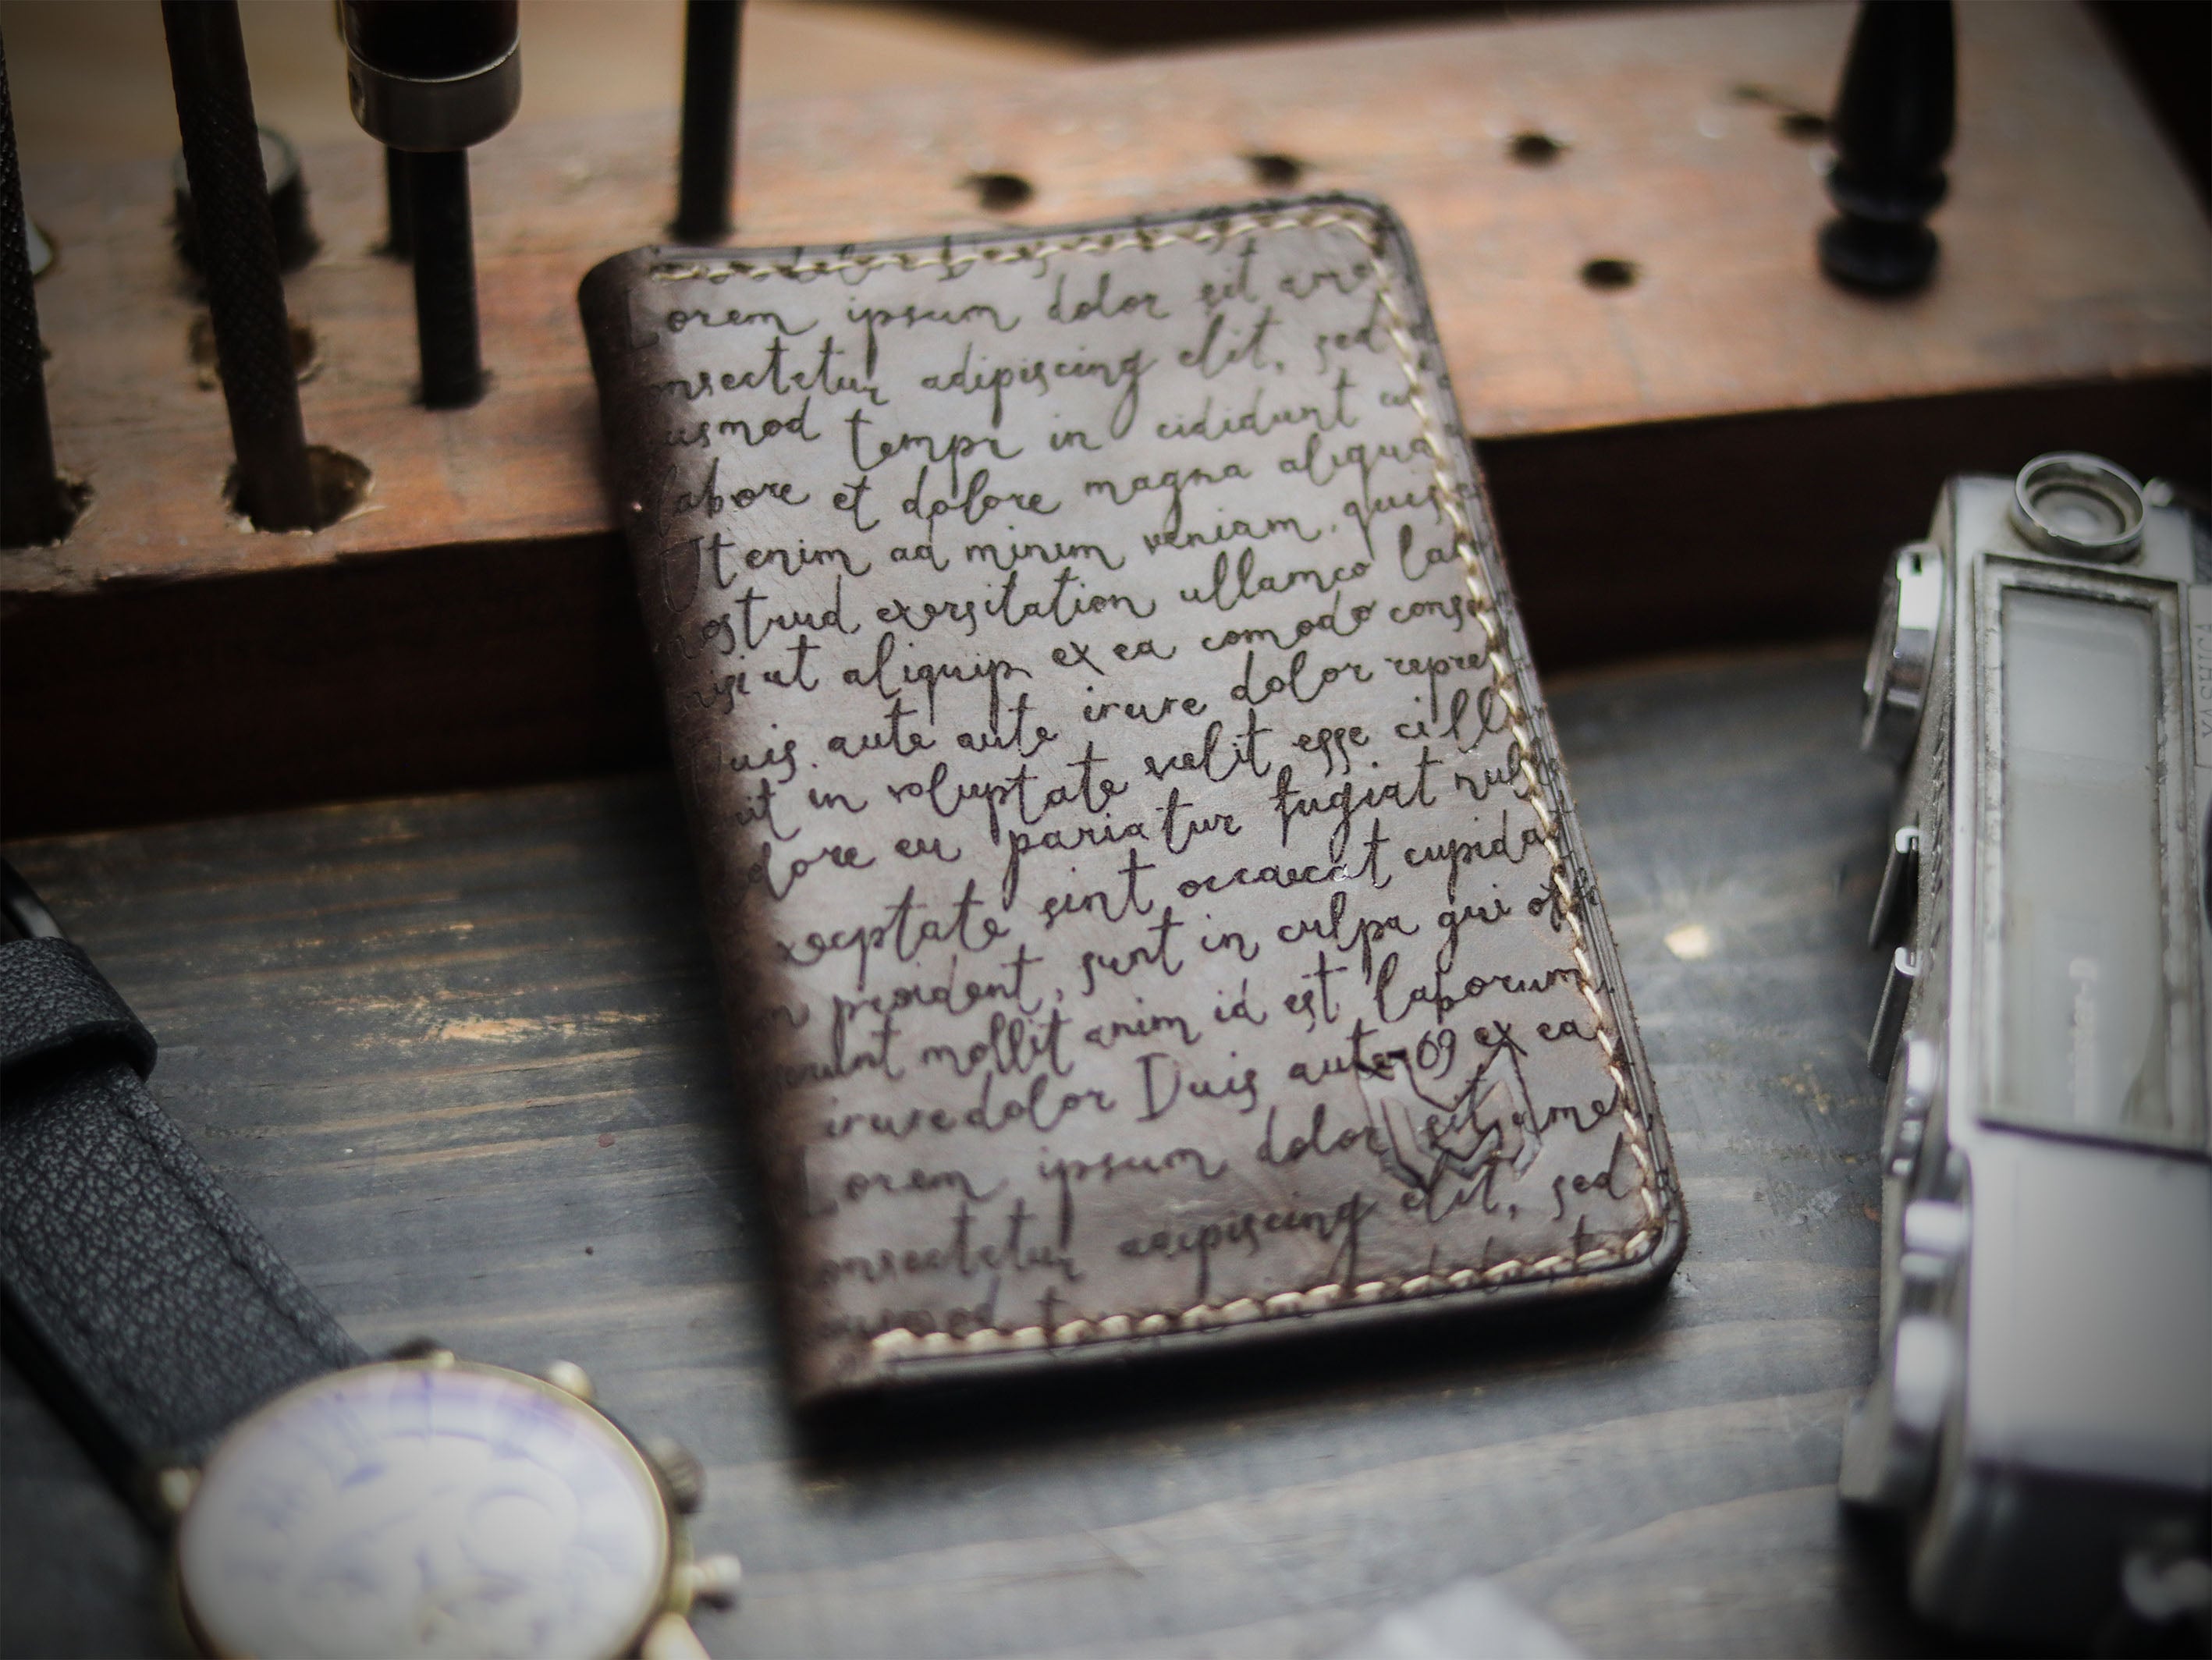 Lorem ipsum dolor sit ame
onsectetur adipiscing elit, sed
iusmod tempr in cididunt
labore et dolore magna aliqua
Ut enim ad minim veniam, quis
nostrud exersitation ullamco lab
nisi ut aliquip ex ea comodo conse
Duis aute aute irure dolor repre
it in voluptate velit esse cill
dolore eu pariatur fugiat null
xceptate sint occaecat cupida
proident, sunt in culpa qui off
mollit anim id est laborum.
irure dolor Duis aute 69 ex ea
Lorem ipsum dolor sit ame
onsectetur adipiscing elit, sed
iusmod
YASHICA